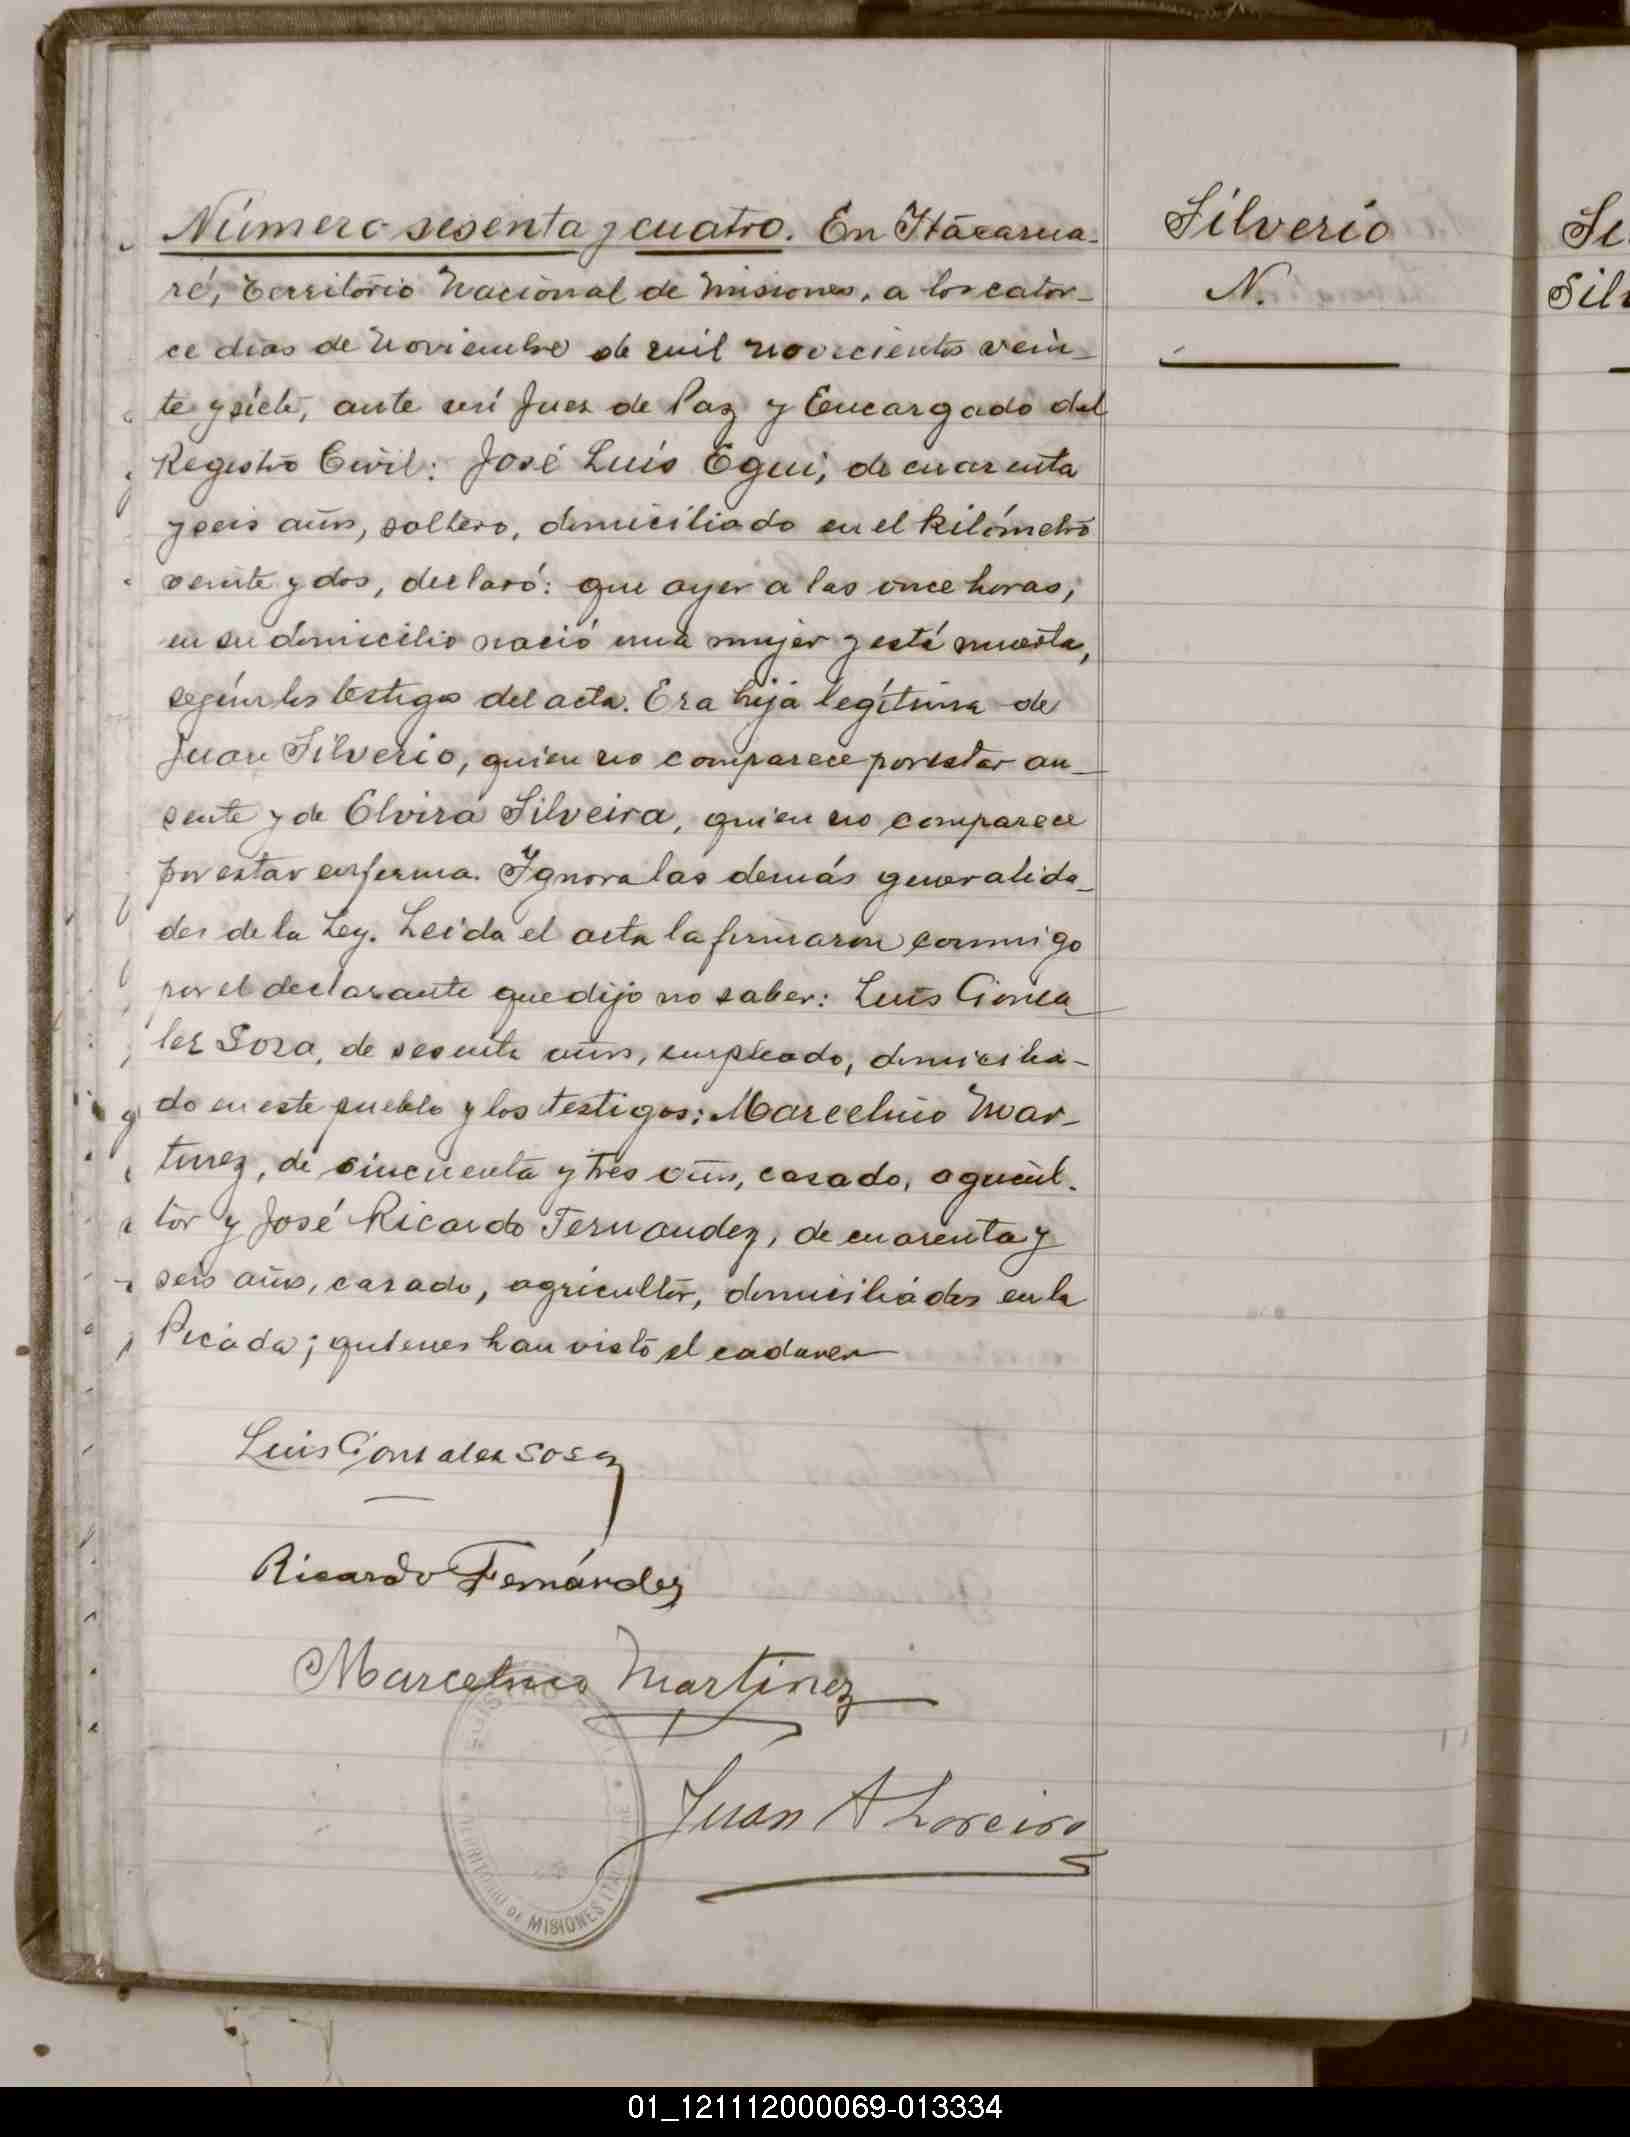 Número sesenta y cuatro. En Itacarua-
ré, Territorio Nacional de Misiones, a los cator-
ce dias de Noviembre de mil novecientos vein-
te y siete, ante mí Juez de Paz y Encargado del
Registro Civil: José Luís Egui, de cuarenta
y seis años, soltero, domiciliado en el kilómetro
veinte y dos, declaró: que ayer a las once horas,
en su domicilio nació una mujer y está muerta,
según los testigos del acta. Era hija legítima de
Juan Silverio, quien no comparece por estar au-
sente y de Elvira Silveira, quien no comparece
por estar enferma. Ignora las demás generalida-
des de la Ley. Leida el acta la firmaron conmigo
por el declarante que dijo no saber: Luis Gonza
lez Sosa, de sesenta años, empleado, domicilia-
do en este pueblo y los testigos: Marcelino Mar-
tinez, de cincuenta y tres años, casado, agricul-
tor y José Ricardo Fernandez, de cuarenta y
seis años, casado, agricultor, domiciliados en la
Picada; quienes han visto el cadaver
Luis Gonzalez Sosa
Ricardo Fernández
Marcelino Martinez
Juan A Loreiro
TERRITORIO DE MISIONES
Silverio
N.
01_121112000069-013334